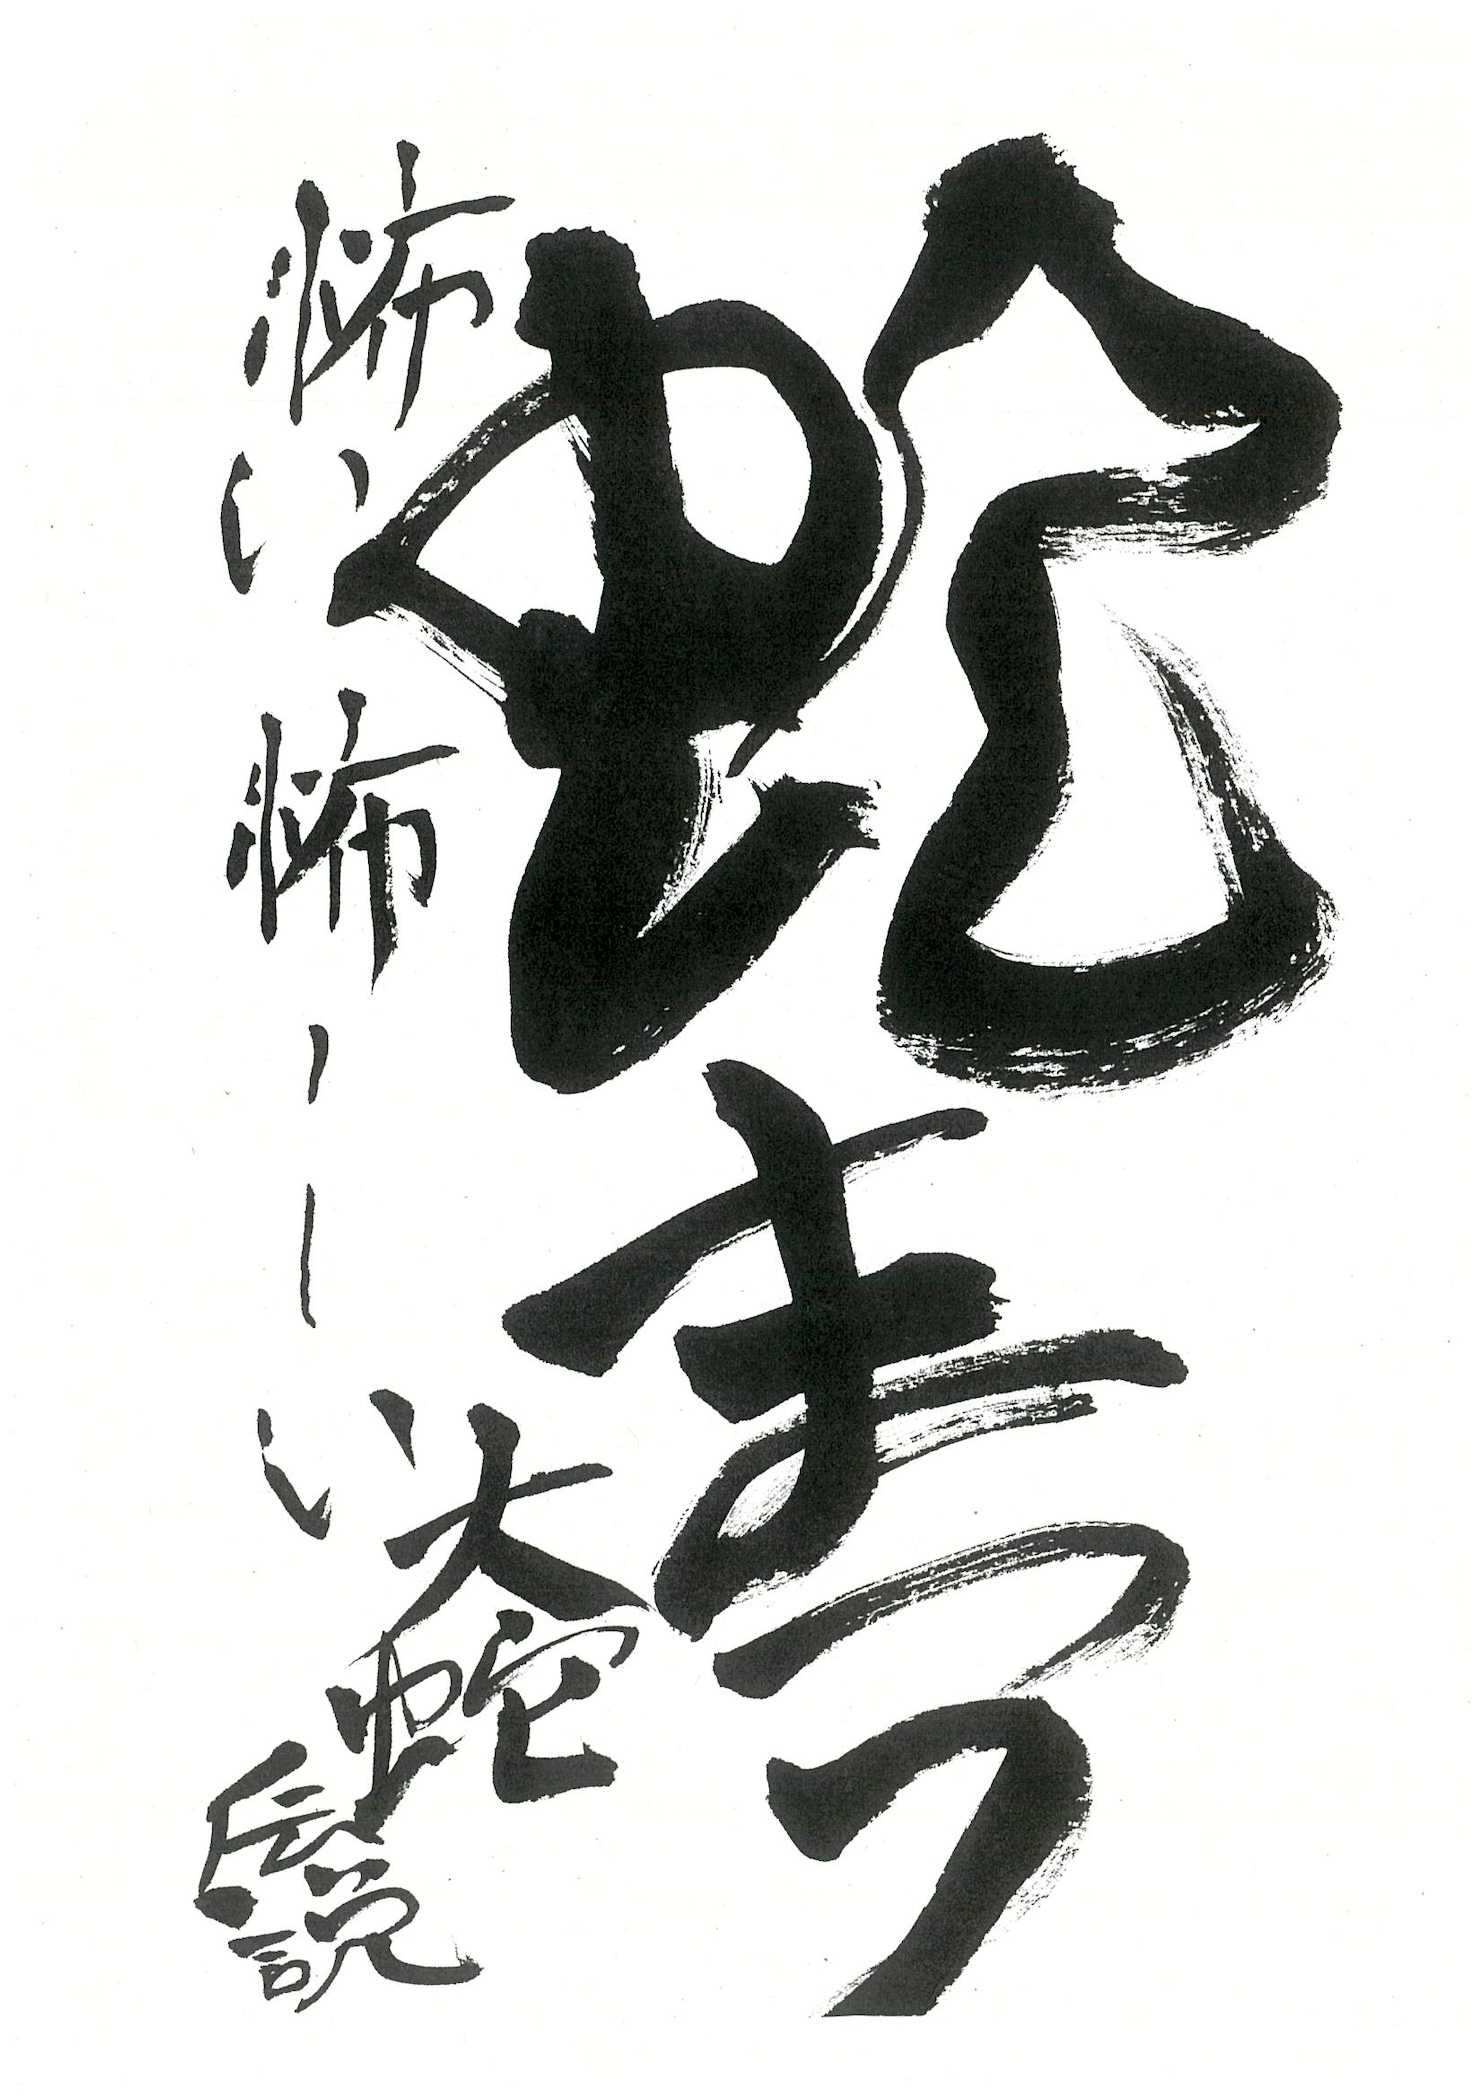 蛇まつ
怖い怖ーい大蛇
伝説